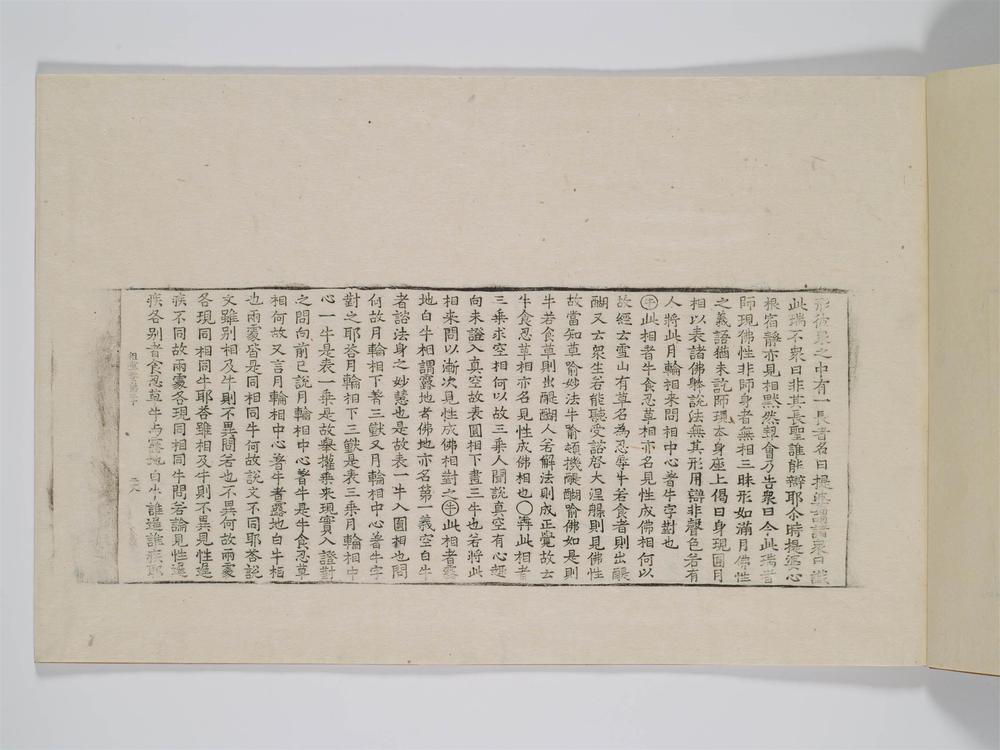 形彼衆之中有一長者名曰提婆謂諸衆曰識
此瑞不衆曰非其長聖誰能辯耶尒時提婆心
根宿靜亦見相默然契會乃告衆曰今此瑞者
師現佛性非師身者無相三昧形如滿月佛性
之義語猶未訖師現本身座上偈曰身現圓月
相以表諸佛躰說法無其形用辯非聲色若有
人將此月輪相來問相中心著牛字對也
㊉牛此相者牛食忍草相亦名見性成佛相何以
故經云雪山有草名爲忍辱牛若食者則出醍
醐又云衆生若能聽受諮啓大涅槃則見佛性
故當知草喻妙法牛喻頓機醍醐喻佛如是則
牛若食草則出醍醐人若解法則成正覺故云
牛食忍草相亦名見性成佛相也○犇此相者
三乘求空相何以故三乘人聞說真空有心趣
向未證入真空故表圓相下畫三牛也若將此
相來問以漸次見性成佛相對之牛此相者露
地白牛相謂露地者佛地亦名第一義空白牛
者諮法身之妙慧也是故表一牛入圓相也問
何故月輪相下著三獸又月輪相中心著牛字
對之耶荅月輪相下三獸是表三乘月輪相中
心一牛是表一乘是故舉權乘來現實入證對
之問向前已說月輪相中心著牛是牛食忍草
相何故又言月輪相中心著牛者露地白牛相
也兩處皆是同相同牛何故說文不同耶荅說
文雖別相及牛則不異問若也不異何故兩處
各現同相同牛耶荅雖相及牛則不異見性遲
疾不同故兩處各現同相同牛問若論見性遲
疾各別者食忍草牛与露地白牛誰遲誰疾耶